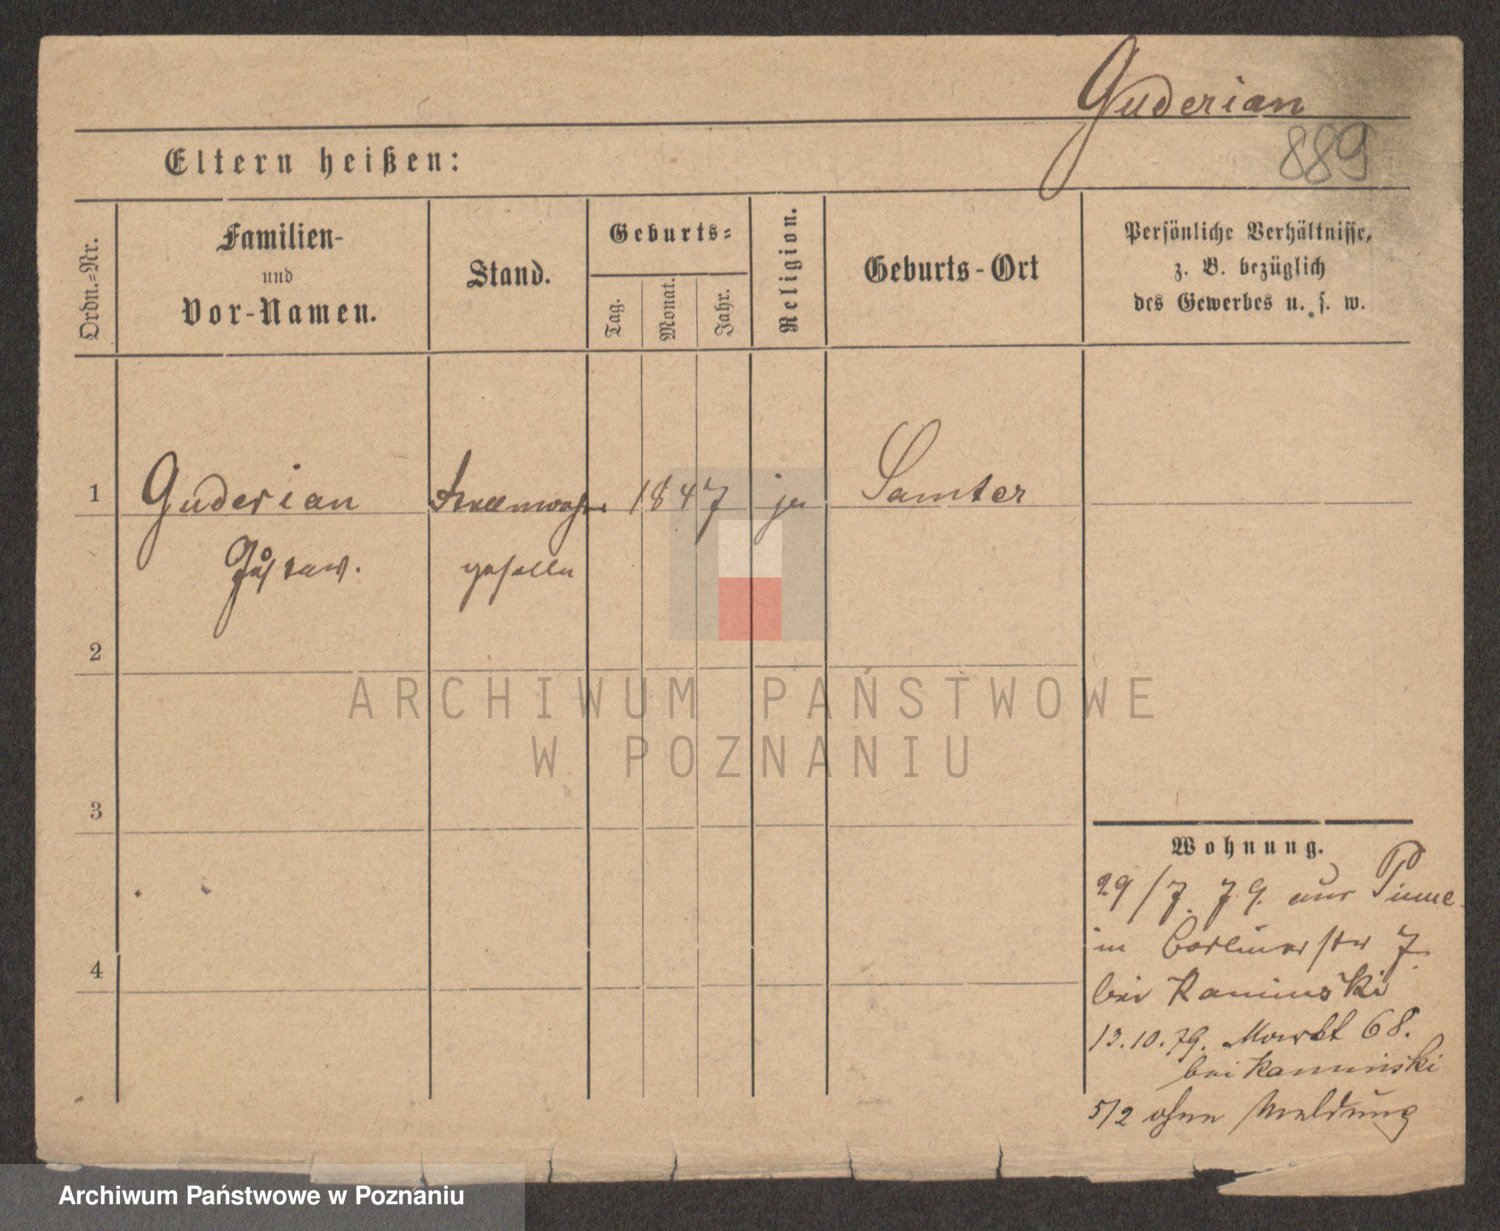 Guderian
889
Eltern heißen:
Ordn.-Nr.
Familien-
und
Vor-Namen.
Stand.
Geburts-
Tag.
Monat.
Jahr.
Religion.
Geburts-Ort
Persönliche Verhältnisse,
z. B. bezüglich
des Gewerbes u. s. w.
1
Guderian
1847
Samter
Gustaw.
geselle
2
3
4
Wohnung.
29/7. 79. aus Pinne
in Berlinerstr 7.
bei Kaminski
13.10.79. Markt 68.
bei Kaminski
5/2 ohne Meldung
ARCHIWUM PAŃSTWOWE
W POZNANIU
Archiwum Państwowe w Poznaniu